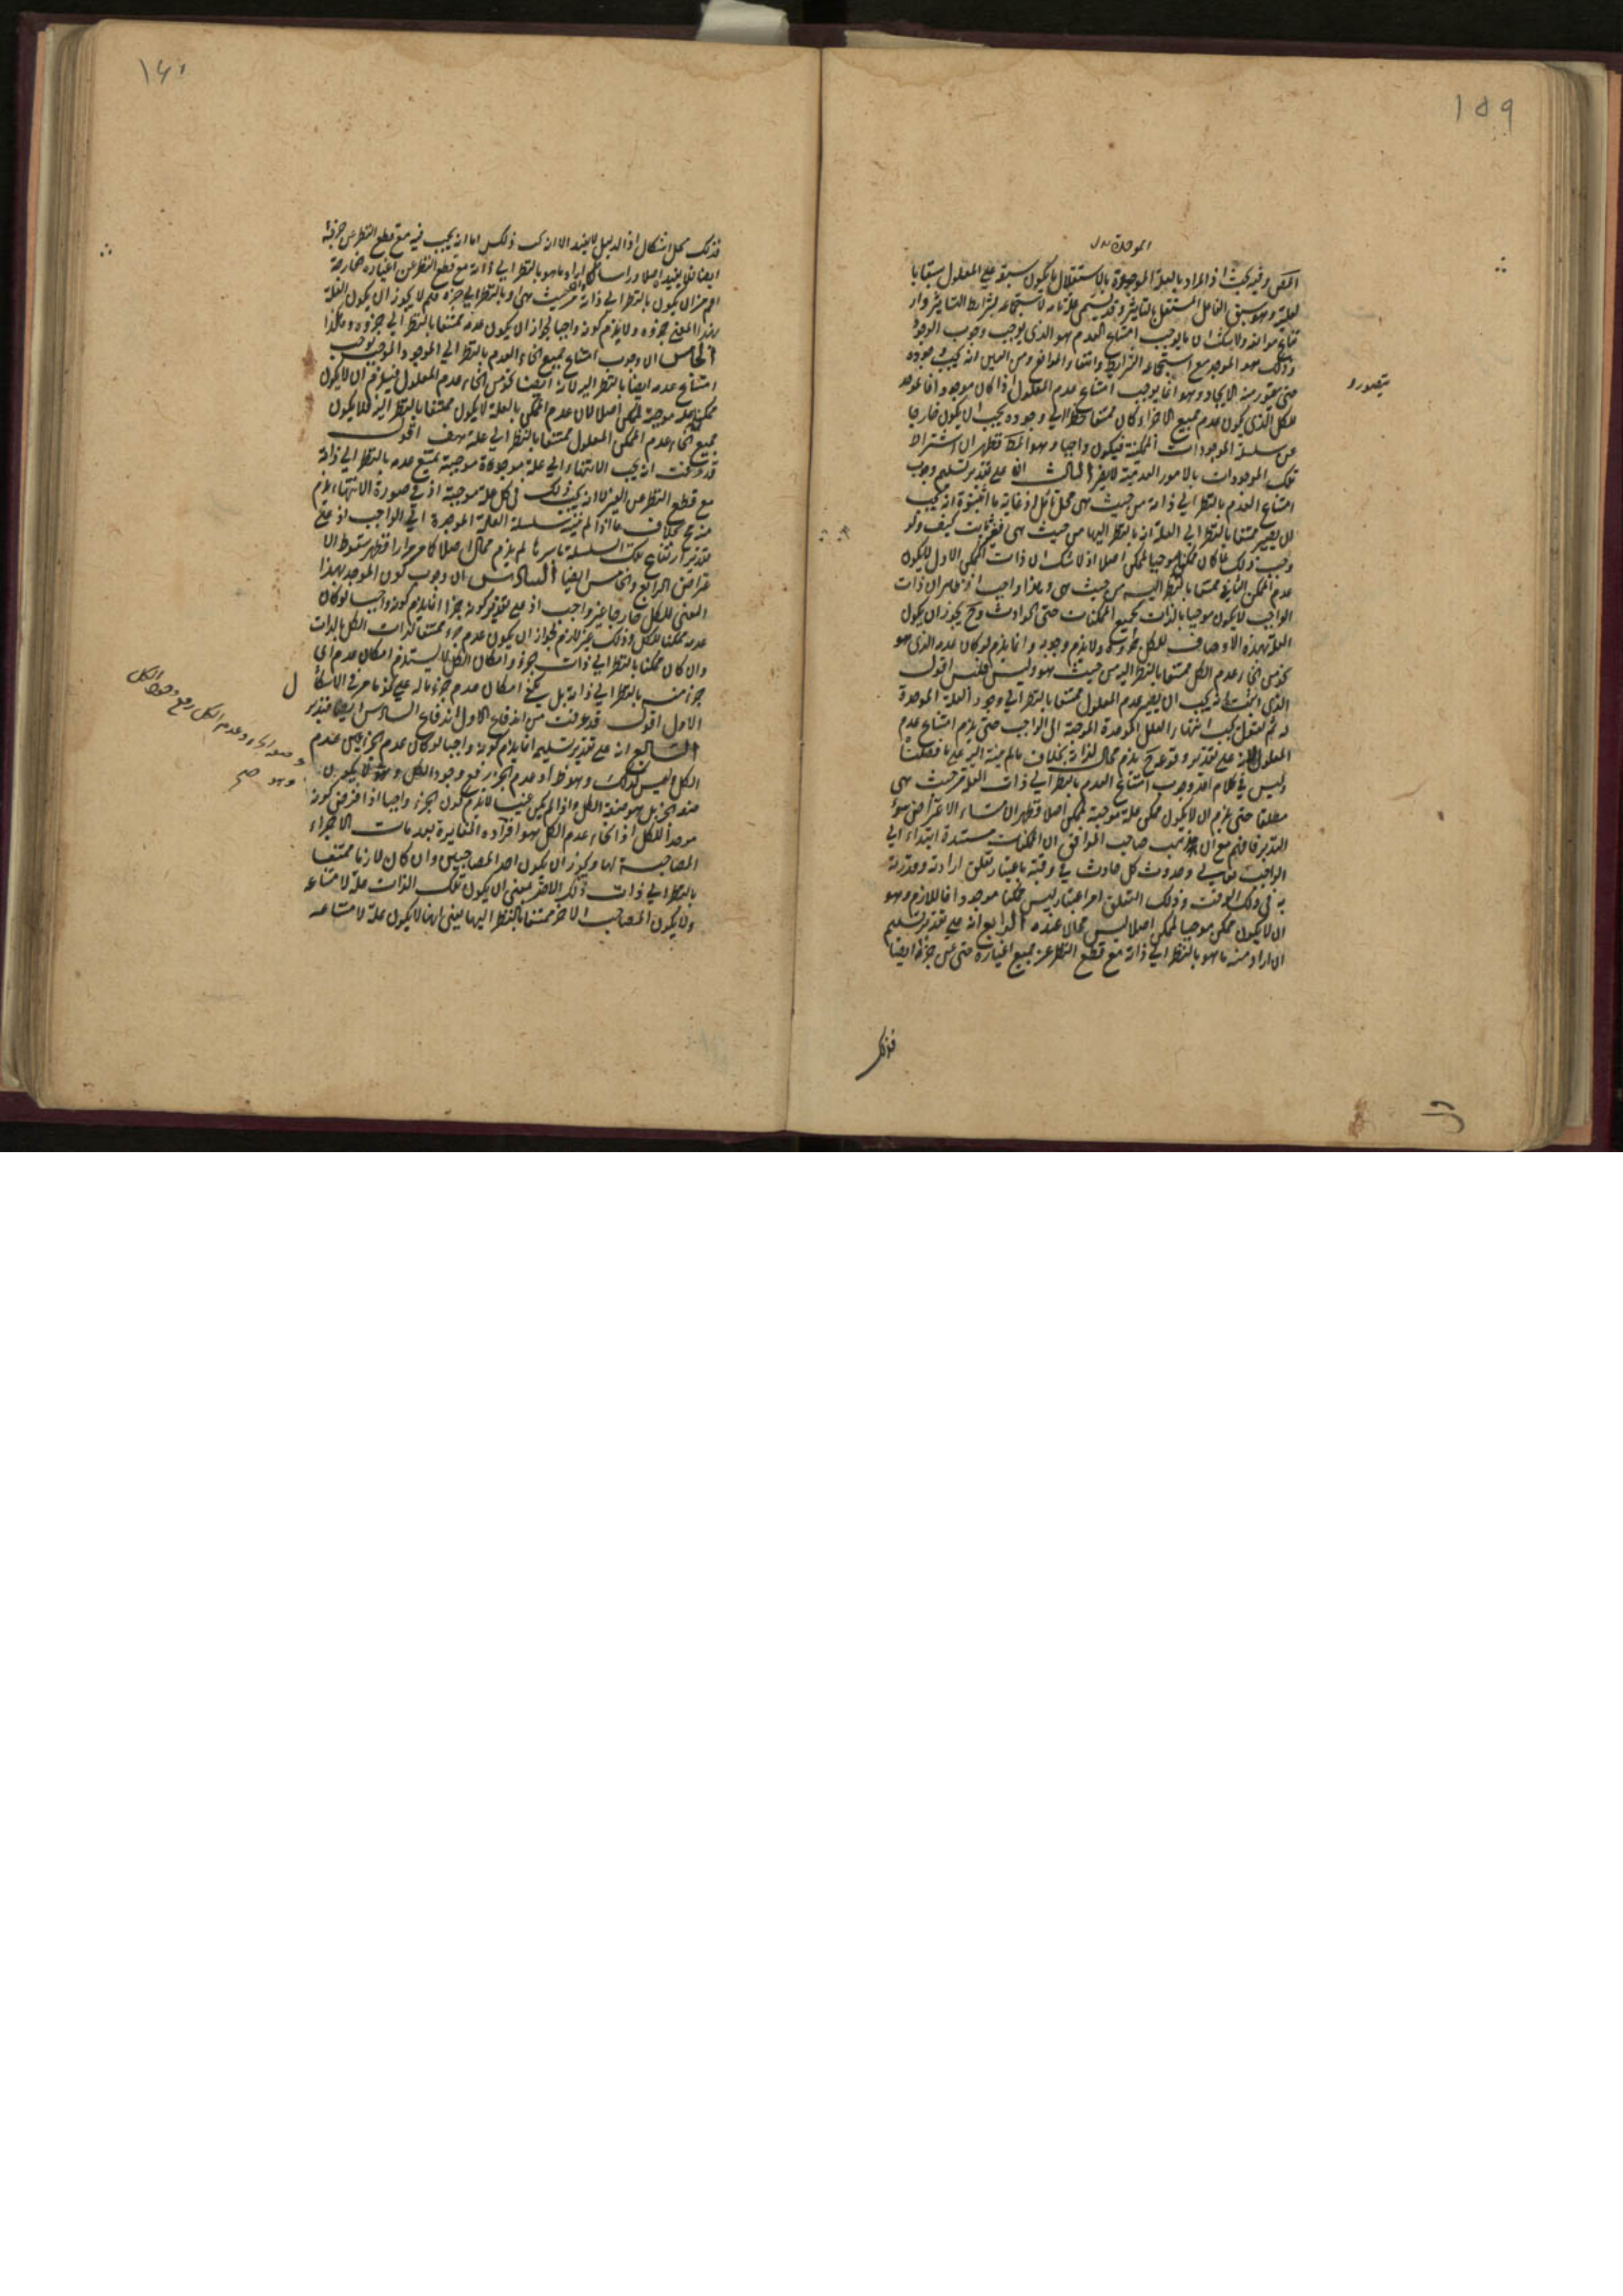 ١٥٩
الموجدة
وفيه بحث اذ المراد بالعلة الموجدة بالاستقلال ما يكون سبقه على المعلول سبقا با
لعلية وهو سبق الفاعل المستقل بالتاثير وقد يسمى علة تامة لاستجماعه لشرائط التاثير وار
تفاع موانعه ولا شك ان ما يوجب امتناع العدم هو الذى يوجب وجوب الوجود
وذلك هو الموجد مع استجماع الشرايط وانتفاء الموانع ومن البين انه يجب وجوده
حتى يتصور منه الايجاد وهو انما يوجب امتناع عدم المعلول اذا كان موجودا فالموجد
يتصور و
للكل الذى يكون عدم جميع الاجزاء كان ممتنعا بالنظر الى وجوده يجب ان يكون خارجا
عن سلسلة الموجودات الممكنة فيكون واجبا وهو المط فظهر ان اشتراط
تلك الموجودات بالامور العدمية لا يضر الثالث انه على تقدير تسليم وجوب
امتناع العدم بالنظر الى ذاته من حيث هى محل تامل اذ غاية ما اثبتوه انه يجب
ان يصير ممتنعا بالنظر الى العلة انه بالنظر اليها من حيث هى فغير ثابت كيف ولو
وجب ذلك لما كان ممكن موجبا لممكن اصلا اذ لا شك ان ذات الممكن الاول لا يكون
عدم الممكن الثانى ممتنعا بالنظر اليه من حيث هى وهذا واجب اذ ظاهر ان ذات
الواجب لا يكون موجبا بالذات لجميع الممكنات حتى الحوادث وح يجوز ان يكون
العلة بهذه الاوصاف للكل جزؤه ولا يلزم وجوبه وانما يلزم لو كان عدمه الذى هو
نحو من انحاء عدم الكل ممتنعا بالنظر اليه من حيث هو وليس فليس اقول
الذى اثبت انه يجب ان يصير عدم المعلول ممتنعا بالنظر الى وجود العلة الموجدة
له ثم العقل يجب انتهاء العلل الموجدة الموجبة الى الواجب حتى يلزم امتناع عدم
وليس فى كلام وجوب امتناع العدم بالنظر الى ذات العلة من حيث هى
مطلقا حتى يلزم ان لا يكون ممكن علة موجبة لممكن اصلا فظهر ان منشاء الاعتراض سوء
التدبر فافهم مع ان مذهب صاحب المواقف ان الممكنات مستندة ابتداء الى
الواجب تعالى وحدوث كل حادث فى وقته باعتبار تعلق ارادته وقدرته
به فى ذلك الوقت وذلك التعلق امر اعتبارى ليس ممكنا موجودا فاللازم وهو
ان لا يكون ممكن موجبا لممكن اصلا ليس محالا عنده الرابع انه على تقدير تسليم
ان اراد منه ما هو بالنظر الى ذاته مع قطع النظر عن جميع اغياره حتى عن جزئه ايضا
فذلك
١٦٠
فذلك محل اشكال اذ الدليل لا يفيد الا انه كذلك اما انه يجب فيه مع قطع النظر عن جزئه
ايضا فلا يفيده اصلا وراسا وان اراد ما هو بالنظر الى ذاته مع قطع النظر عن اغياره الخارجة
اعم من ان يكون بالنظر الى ذاته من حيث هى او بالنظر الى جزئه فلم لا يجوز ان يكون العلة
بهذا المعنى جزؤه ولا يلزم كونه واجبا لجواز ان يكون عدمه ممتنعا بالنظر الى جزؤه وهكذا
الخامس ان وجوب امتناع جميع انحاء العدم بالنظر الى الموجد والموجب يوجب
امتناع عدمه ايضا بالنظر اليه لانه ايضا نحو من انحاء عدم المعلول فيلزم ان لا يكون
ممكن علة موجبة لممكن اصلا لان عدم الممكن بالعلة لا يكون ممتنعا بالنظر اليه فلا يكون
جميع انحاء عدم الممكن المعلول ممتنعا بالنظر الى علته هف اقول
قد عرفت انه يجب الانتهاء الى علة موجودة موجبة يمتنع عدمه بالنظر الى ذاته
مع قطع النظر عن الغير لا انه يجب ذلك فى كل علة موجبة اذ فى صورة الانتهاء يلزم
منه مح بخلاف ما اذا لم ينته سلسلة العلية الموجدة الى الواجب اذ على
تقدير ارتفاع تلك السلسلة باسرها لم يلزم محال اصلا كما مر مرارا فظهر سقوط الا
عتراض الرابع والخامس ايضا السادس ان وجوب كون الموجد بهذا
المعنى للكل خارجا غير واجب اذ على تقدير كونه جزءا انما يلزم كونه واجبا لو كان
عدمه ممكنا للكل وذلك غير لازم لجواز ان يكون عدم جزء ممتنعا لذات الكل بالذات
وان كان ممكنا بالنظر الى ذات الجزء وامكان الكل لا يستلزم امكان عدم اى
جزء منه بالنظر الى ذاته بل يكفى امكان عدم جزء ما له على نحو ما مر فى الاستكا
ل
الاول اقول قد عرفت من اندفاع الاول اندفاع السادس ايضا فتدبر
السابع انه على تقدير تسليم انما يلزم كونه واجبا لو كان عدم الجزء عين عدم
الكل وليس كذلك وهو ظ اذ عدم الجزء رفع وجود الكل
وعدم الكل رفع وجود الكل
وهو صح
صفة الجزء بل هو صفة الكل واذا لم يكن عينه لا يلزم كون الجزء واجبا اذا فرض كونه
موجدا للكل اذ انحاء عدم الكل هو افراده المغايرة بعدمات الاجزاء
المصاحبة لها ويجوز ان يكون احد المصاحبين وان كان لازما ممتنعا
بالنظر الى ذات ذلك الاخر بمعنى ان يكون تلك الذات علة لامتناعه
ولا يكون المصاحب الاخر ممتنعا بالنظر اليها يعنى انها لا يكون علة لامتناعه